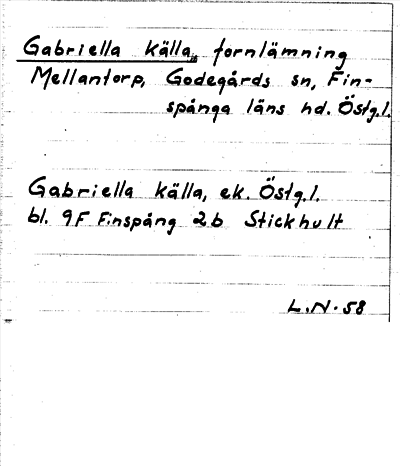 Gabriella källa, fornlämning
Mellantorp, Godegårds sn, Fin-
spånga läns hd. Östg.l.
Gabriella källa, ek. Östg.l.
bl. 9F Finspång 2b Stickhult
L.N. 58